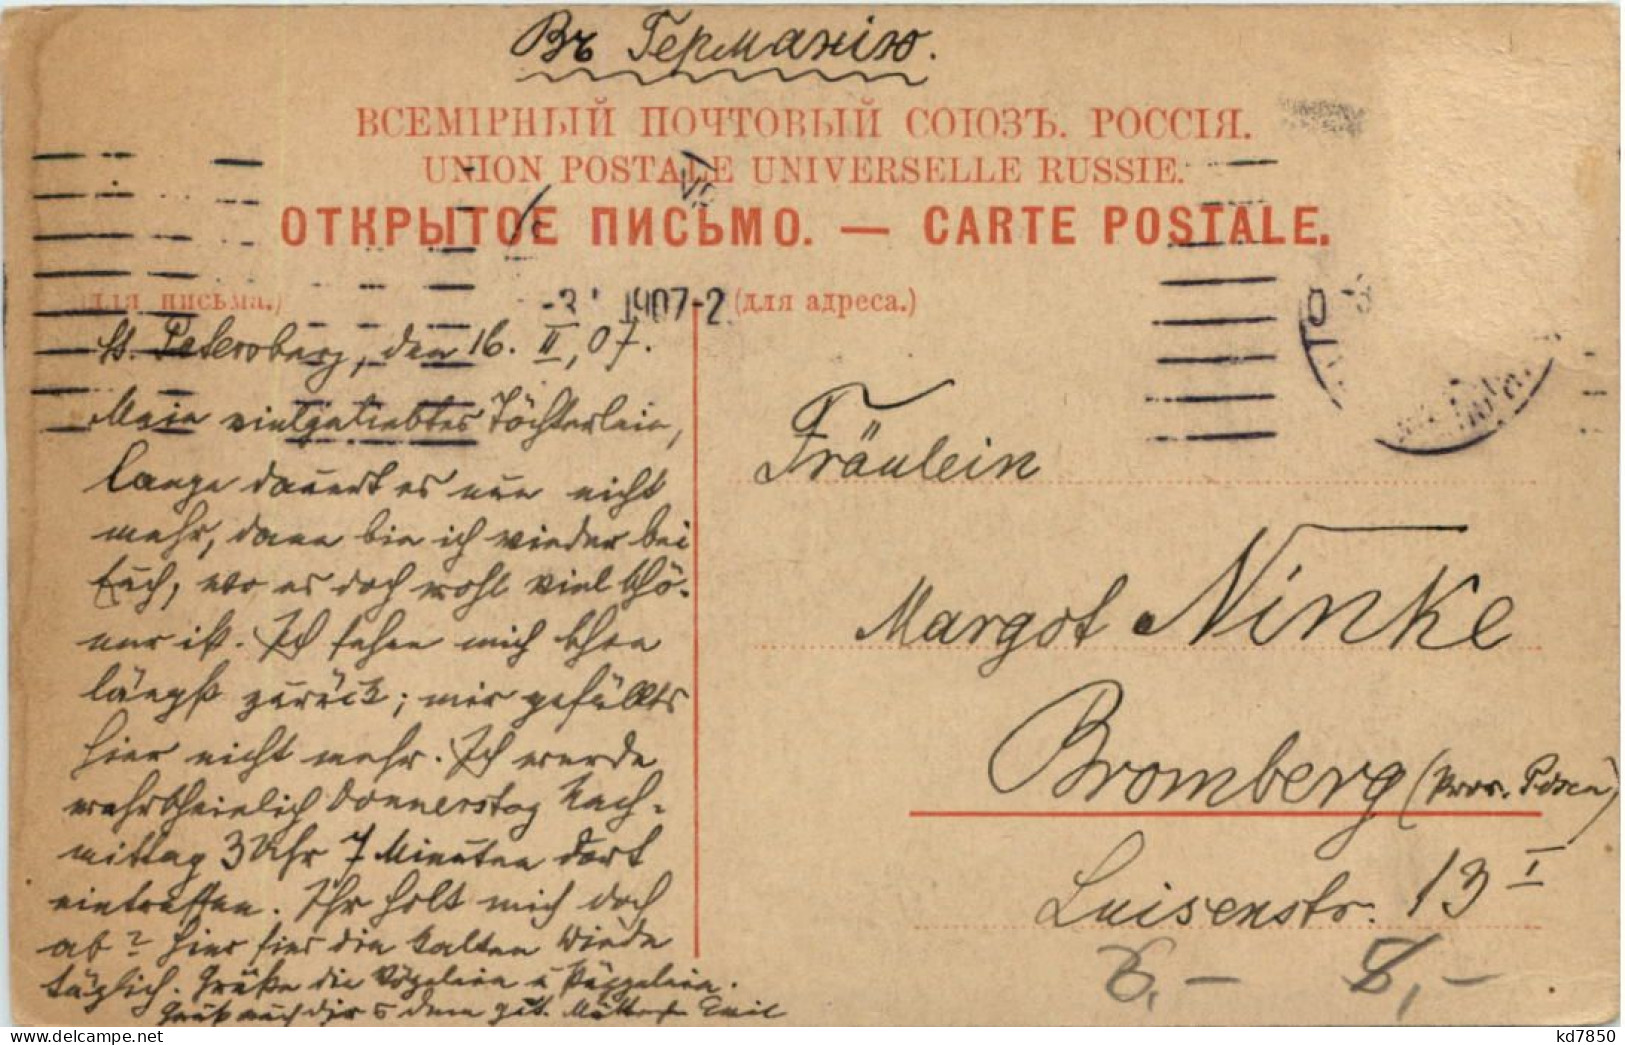 Въ Германію.
ВСЕМІРНЫЙ ПОЧТОВЫЙ СОЮЗЪ. РОССІЯ.
UNION POSTALE UNIVERSELLE RUSSIE.
ОТКРЫТОЕ ПИСЬМО. — CARTE POSTALE.
для письма.)
(для адреса.)
1907-2
St. Petersburg, den 16. II, 07.
Mein vielgeliebtes Töchterlein,
lange dauert es nun nicht
mehr, dann bin ich wieder bei
Euch, wo es doch wohl viel schö-
ner ist. Ich sehne mich schon
längst zurück; mir gefällts
hier nicht mehr. Ich werde
wahrscheinlich Donnerstag Nach-
mittag 3 Uhr 7 Minuten dort
eintreffen. Ihr holt mich doch
ab? Hier sind die kalten Winde
täglich. Grüße die Vögelein u Püppelein.
Gruß auch dir u dem gut. Mutter Emil
Fräulein
Margot Ninke
Bromberg (Prov. Posen)
Luisenstr. 13 I
8,— 8,—
kd7850